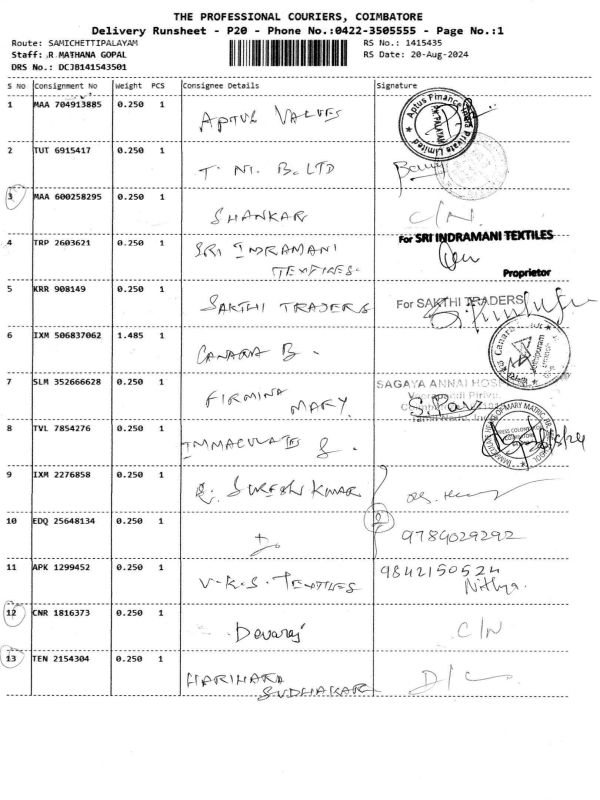 THE PROFESSIONAL COURIERS, COIMBATORE
Delivery Runsheet - P20 - Phone No.:0422-3505555 - Page No.:1
Route: SAMICHETTIPALAYAM RS No.: 1415435
Staff: R MATHANA GOPAL RS Date: 20-Aug-2024
DRS No.: DCJB141543501
S No Consignment No Weight PCS Consignee Details Signature
1 MAA 704913885 0.250 1
APTUS VALUES
Aptus Finance Private Limited
2 TUT 6915417 0.250 1
T. M. B. LTD
3 MAA 600258295 0.250 1
SHANKAR C/N.
4 TRP 2603621 0.250 1 For SRI INDRAMANI TEXTILES
SRI INDRAMANI
TEXTILES. Proprietor
5 KRR 908149 0.250 1
SAKTHI TRADERS For SAKTHI TRADERS
6 IXM 506837062 1.485 1
CANARA B.
7 SLM 352666628 0.250 1 SAGAYA ANNAI
FIRMINA
MARY
8 TVL 7854276 0.250 1
IMMACULATE
9 IXM 2276858 0.250 1
SURESH KUMAR
10 EDQ 25648134 0.250 1 2
9789029292
11 APK 1299452 0.250 1 9842150524
V.K.S. TEXTILES Nithya
12 CNR 1816373 0.250 1
Devaraj C/N
13 TEN 2154304 0.250 1
HARIHARA D/C
SUDHAKAR